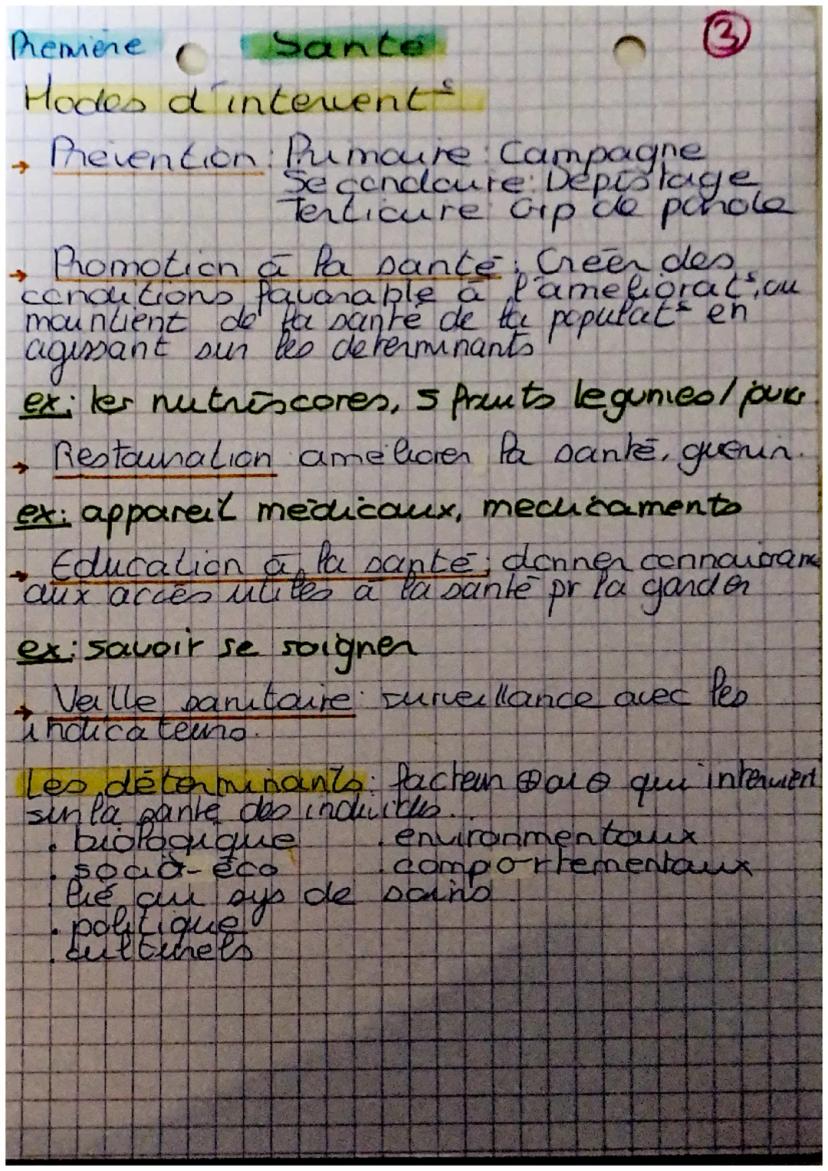 Première Santé 3
Modes d'intervent°s
→ Prévention : Primaire : Campagne
Secondaire : Dépistage
Tertiaire : Grp de parole
→ Promotion à la santé : Créer des
conditions favorable à l'améliorat°, au
maintient de la santé de la populat° en
agissant sur les determinants
ex : les nutriscores, 5 fruits legumes / jour
→ Restauration améliorer la santé, guérir.
ex : appareil médicaux, medicaments
→ Education à la santé : donner connaissance
aux accès utiles à la santé pr la garder
ex : savoir se soigner
→ Veille sanitaire : surveillance avec les
indicateurs.
Les déterminants : facteur ⊕ ou ⊖ qui intervient
sur la santé des individus..
. biologique . environnementaux
. socio-éco . comportementaux
. lié au sys de soins
. politique
. culturels